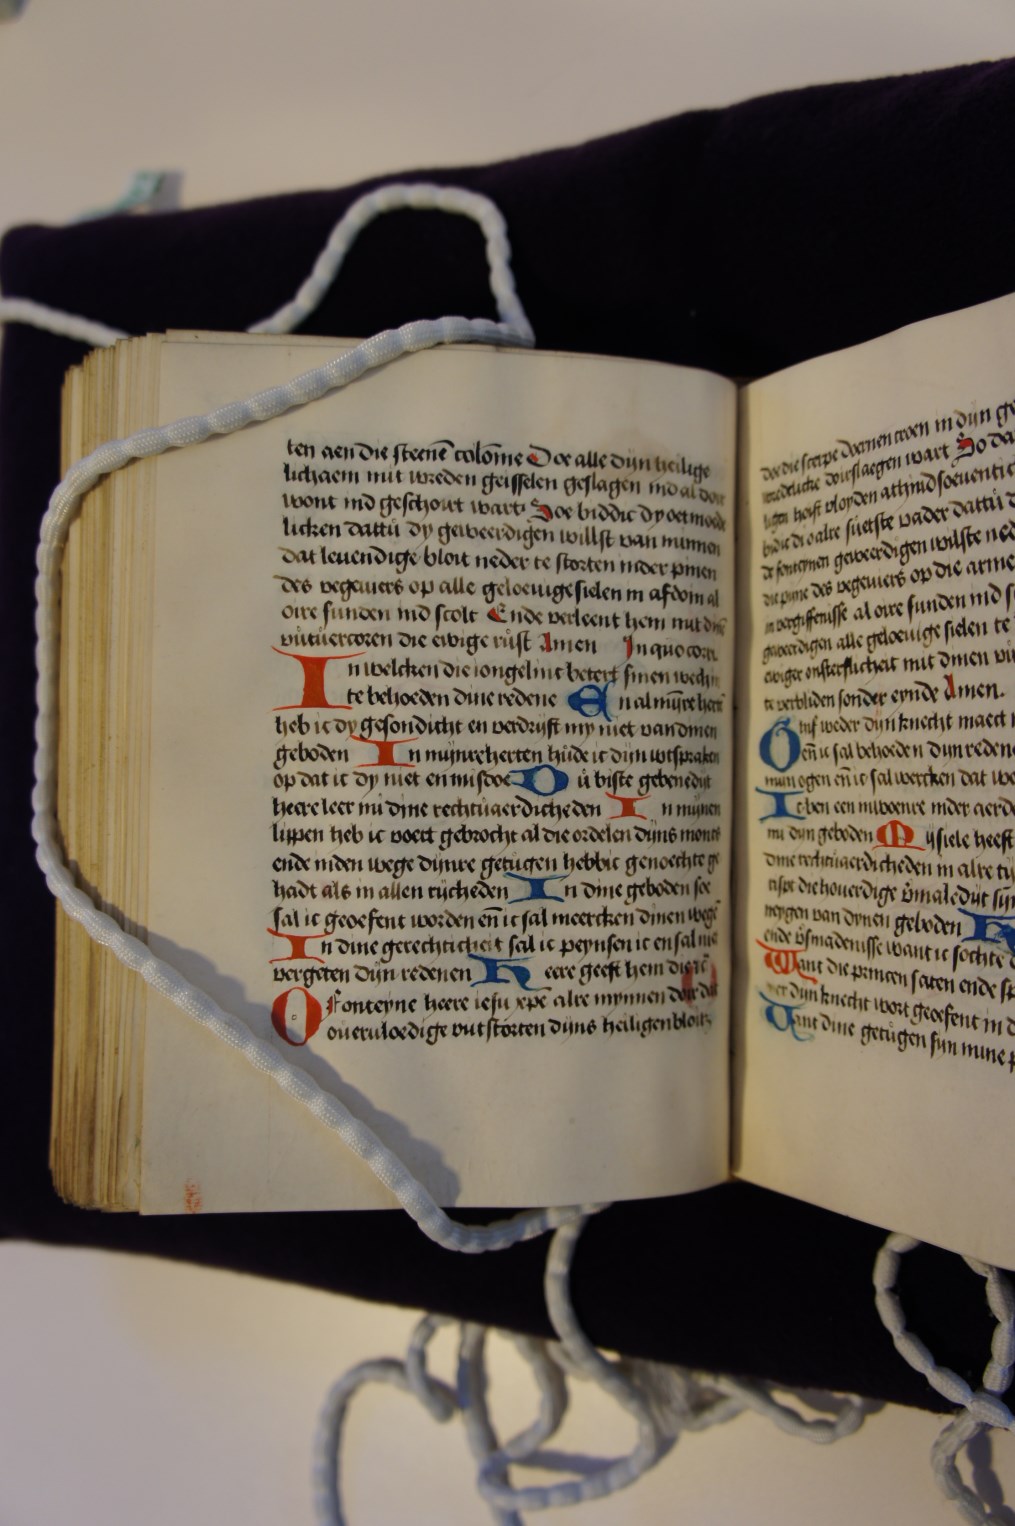 ten aen die steenē colōme Doe alle dijn heilige
lichaem mit wreden geisselen geslagen ind al dor
wont ind geschort wart Soe biddic dy oetmode
licken dattū dy geweerdigen willst van minnen
dat leuendige bloit neder te storten inder pinen
des vegeuiers op alle geloeuige sielen in afdoin al
oire sunden ind scolt Ende verleent hem mit dinē
vūtuercoren die ewige rūst Amen In quo corr.
In welcken die iongelinc betert sinen wech in
te behoeden dine redene En al mijre hert
heb ic dy gesondicht en verdrijft my niet van dinen
geboden In mijnre herten hūde ic dijn wtspraken
op dat ic dy niet en misdoe Dū biste gebenedijt
heere leer mi dine rechtūaerdicheden In minen
lippen heb ic voert gebrocht al die ordelen dijns monts
ende in den wege dijnre getūgen hebbic genoechte ge
hadt als in allen rijcheden In dine geboden soe
sal ic geoefent worden eñ ic sal meercken dinen wegē
In dine gerechticheit sal ic peynsen ic en sal nie
vergeten dijn redenen Heere geeft hem die
O Fonteyne heere iesu xpē alre mynnen doir dat
oueruloedige vutstorten dijns heiligen bloitz
Doe die scerpe doernen croen in dijn
wart So
ligen hoift vloyden
biddic di o alre sūetste vader dattū
de fonteynen geweerdigen wilste
die pine des vegeuiers op die arme
in vergiffenisse al oire sunden ind
geweerdigen alle geloeuige sielen te
ewiger onsterflicheit mit dinen
te verbliden sonder eynde Amen.
Ghif weder dijn knecht maect
eñ ic sal behoeden dijn redene
mijn ogen eñ ic sal mercken dat
Ic ben een inwoenre inder aerde
mi dijn geboden Mijn siele heeft
dine rechtūaerdicheden in alre
rispt die houerdige
neygen van dynen geboden
ende want ic sochte
Want die princen saten ende
mer dijn knecht wort geoefent in
Want dine getūgen sijn mine